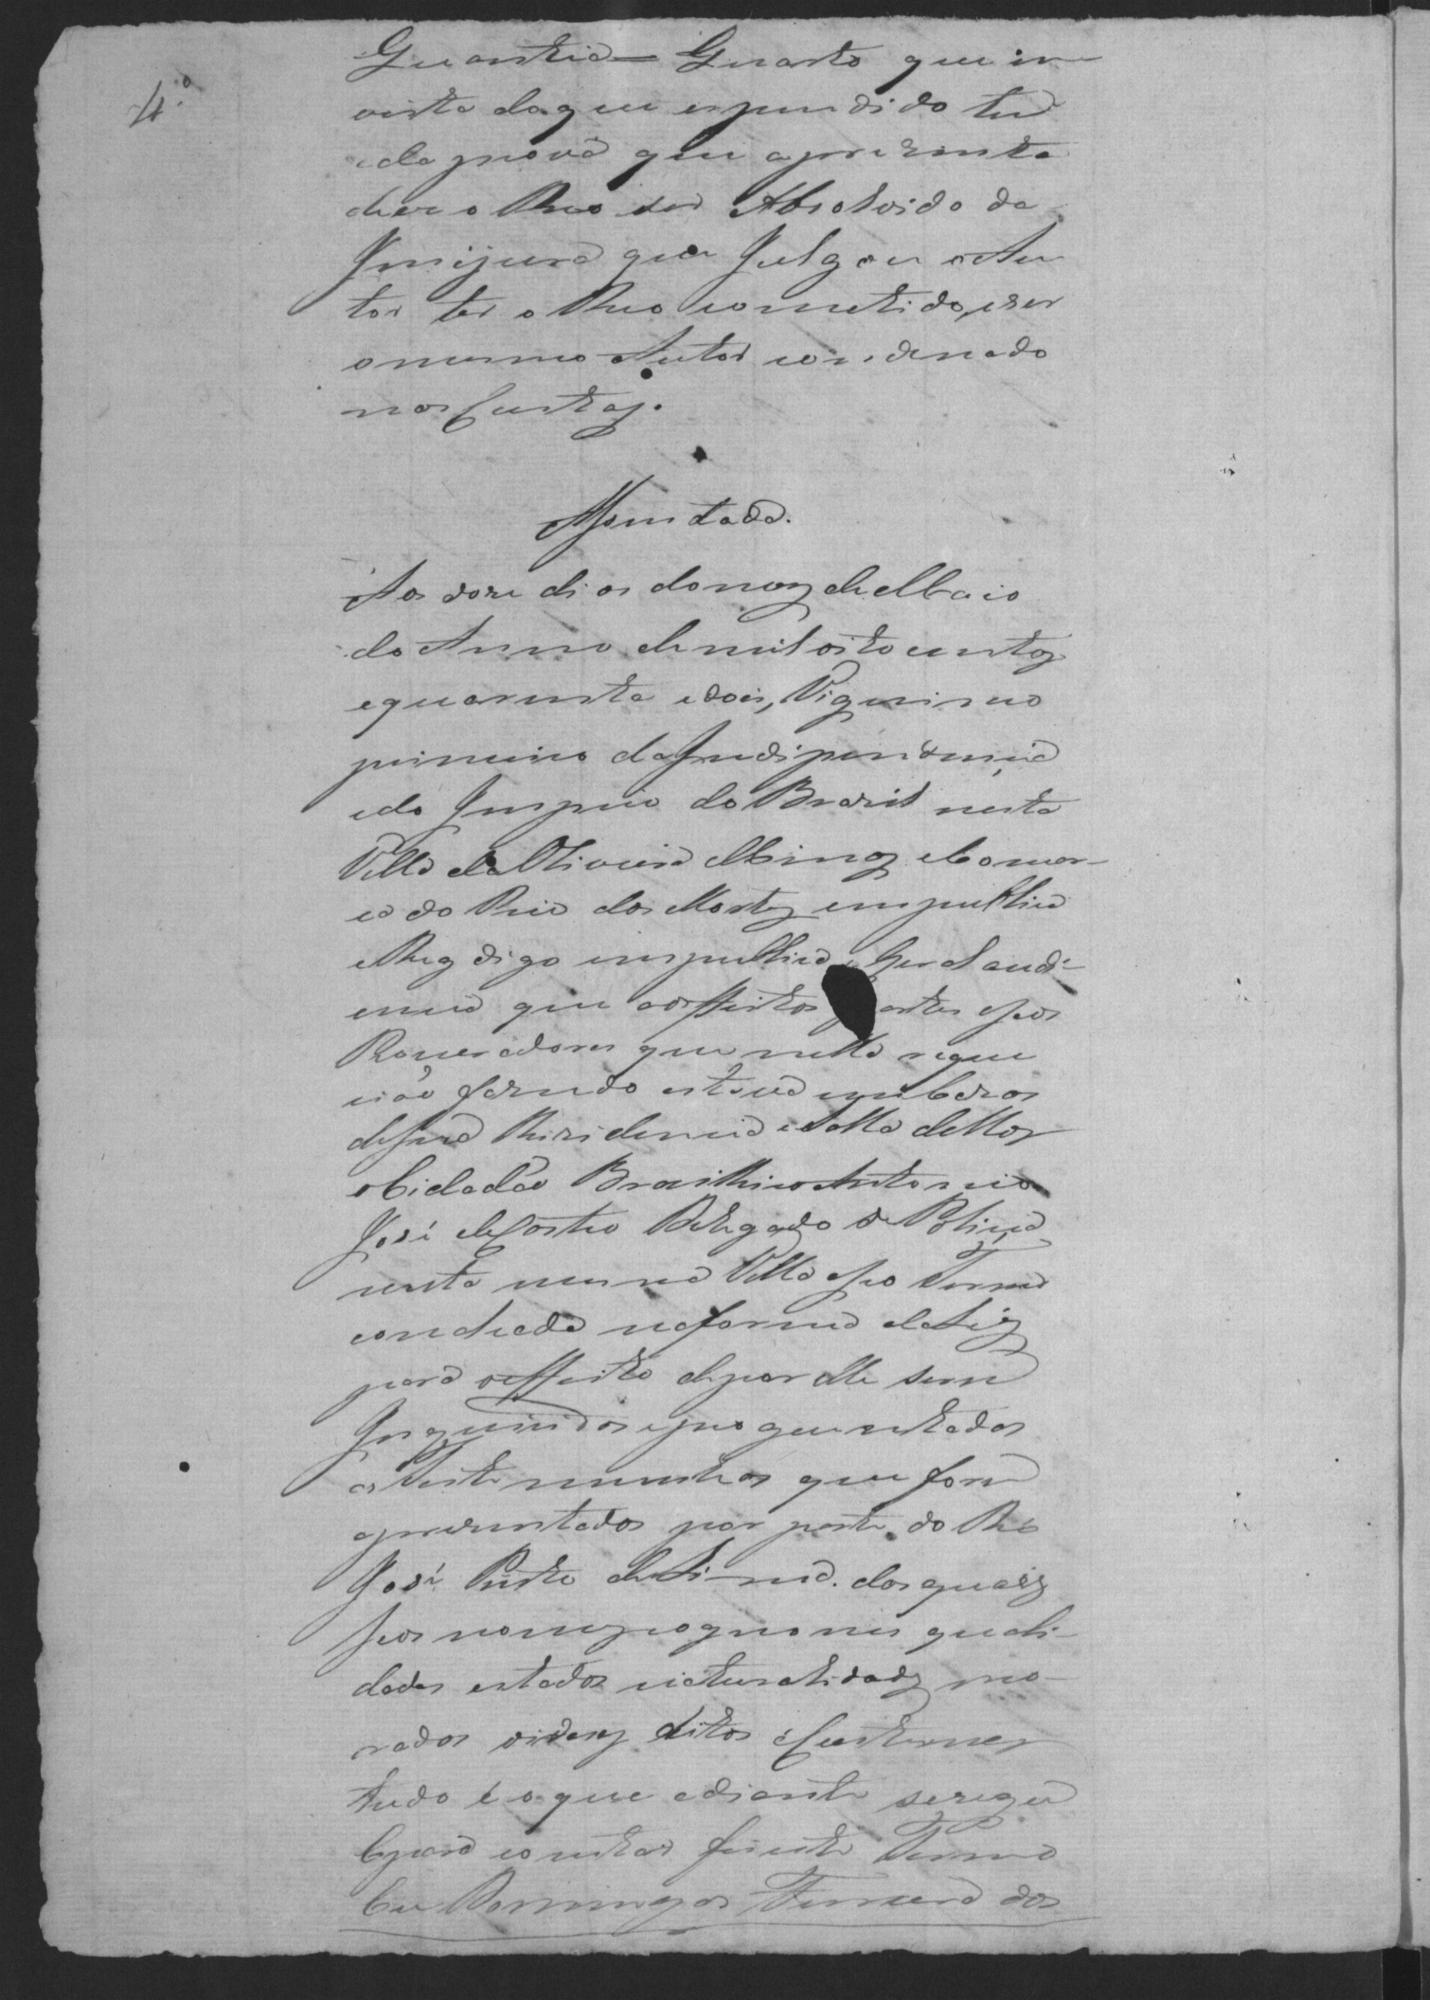 4.º
Quantia = Quarto que in
vista do que espendido tud
e da prova que aprezenta
deve o Reo ser Absolvido da
Injuria que Julgou o Au
tor ter o Reo cometido, e ser
o mesmo Autor condenado
nas Custas.
Assentada.
Aos doze dias do mez de Maio
do Anno de mil oito centos
e quarenta e dois, Vigesimo
primeiro da Independencia
e do Imperio do Brazil nesta
Villa de Oliveira Minas e Comar-
ca do Rio das Mortes em publica
e Reg digo em publica e Geral audi-
encia que aos feitos partes e seos
Procuradores que nella reque
rião fazendo estava em Cazas
de sua Rezidencia e Salla dellas
o Cidadão Brasilleiro Antonio
José de Castro Delegado de Policia
nesta mesma Villa e seo Termo
na forma da Lei
para o effeito de por elle serem
Inquiridos e preguntados
as Testemunhas que forão
aprezentadas por parte do Reo
José Pinto de Lima. das quaes
seos nomes cognomes quali-
dades estados naturalidades mo-
rados ditos e Custumes
tudo é o que adiante se segue
E para constar fis este Termo
Eu Domingos dos